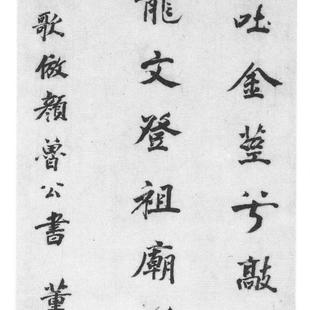 吐金莖兮敲
龍文登祖廟
歌倣顏魯公書 董